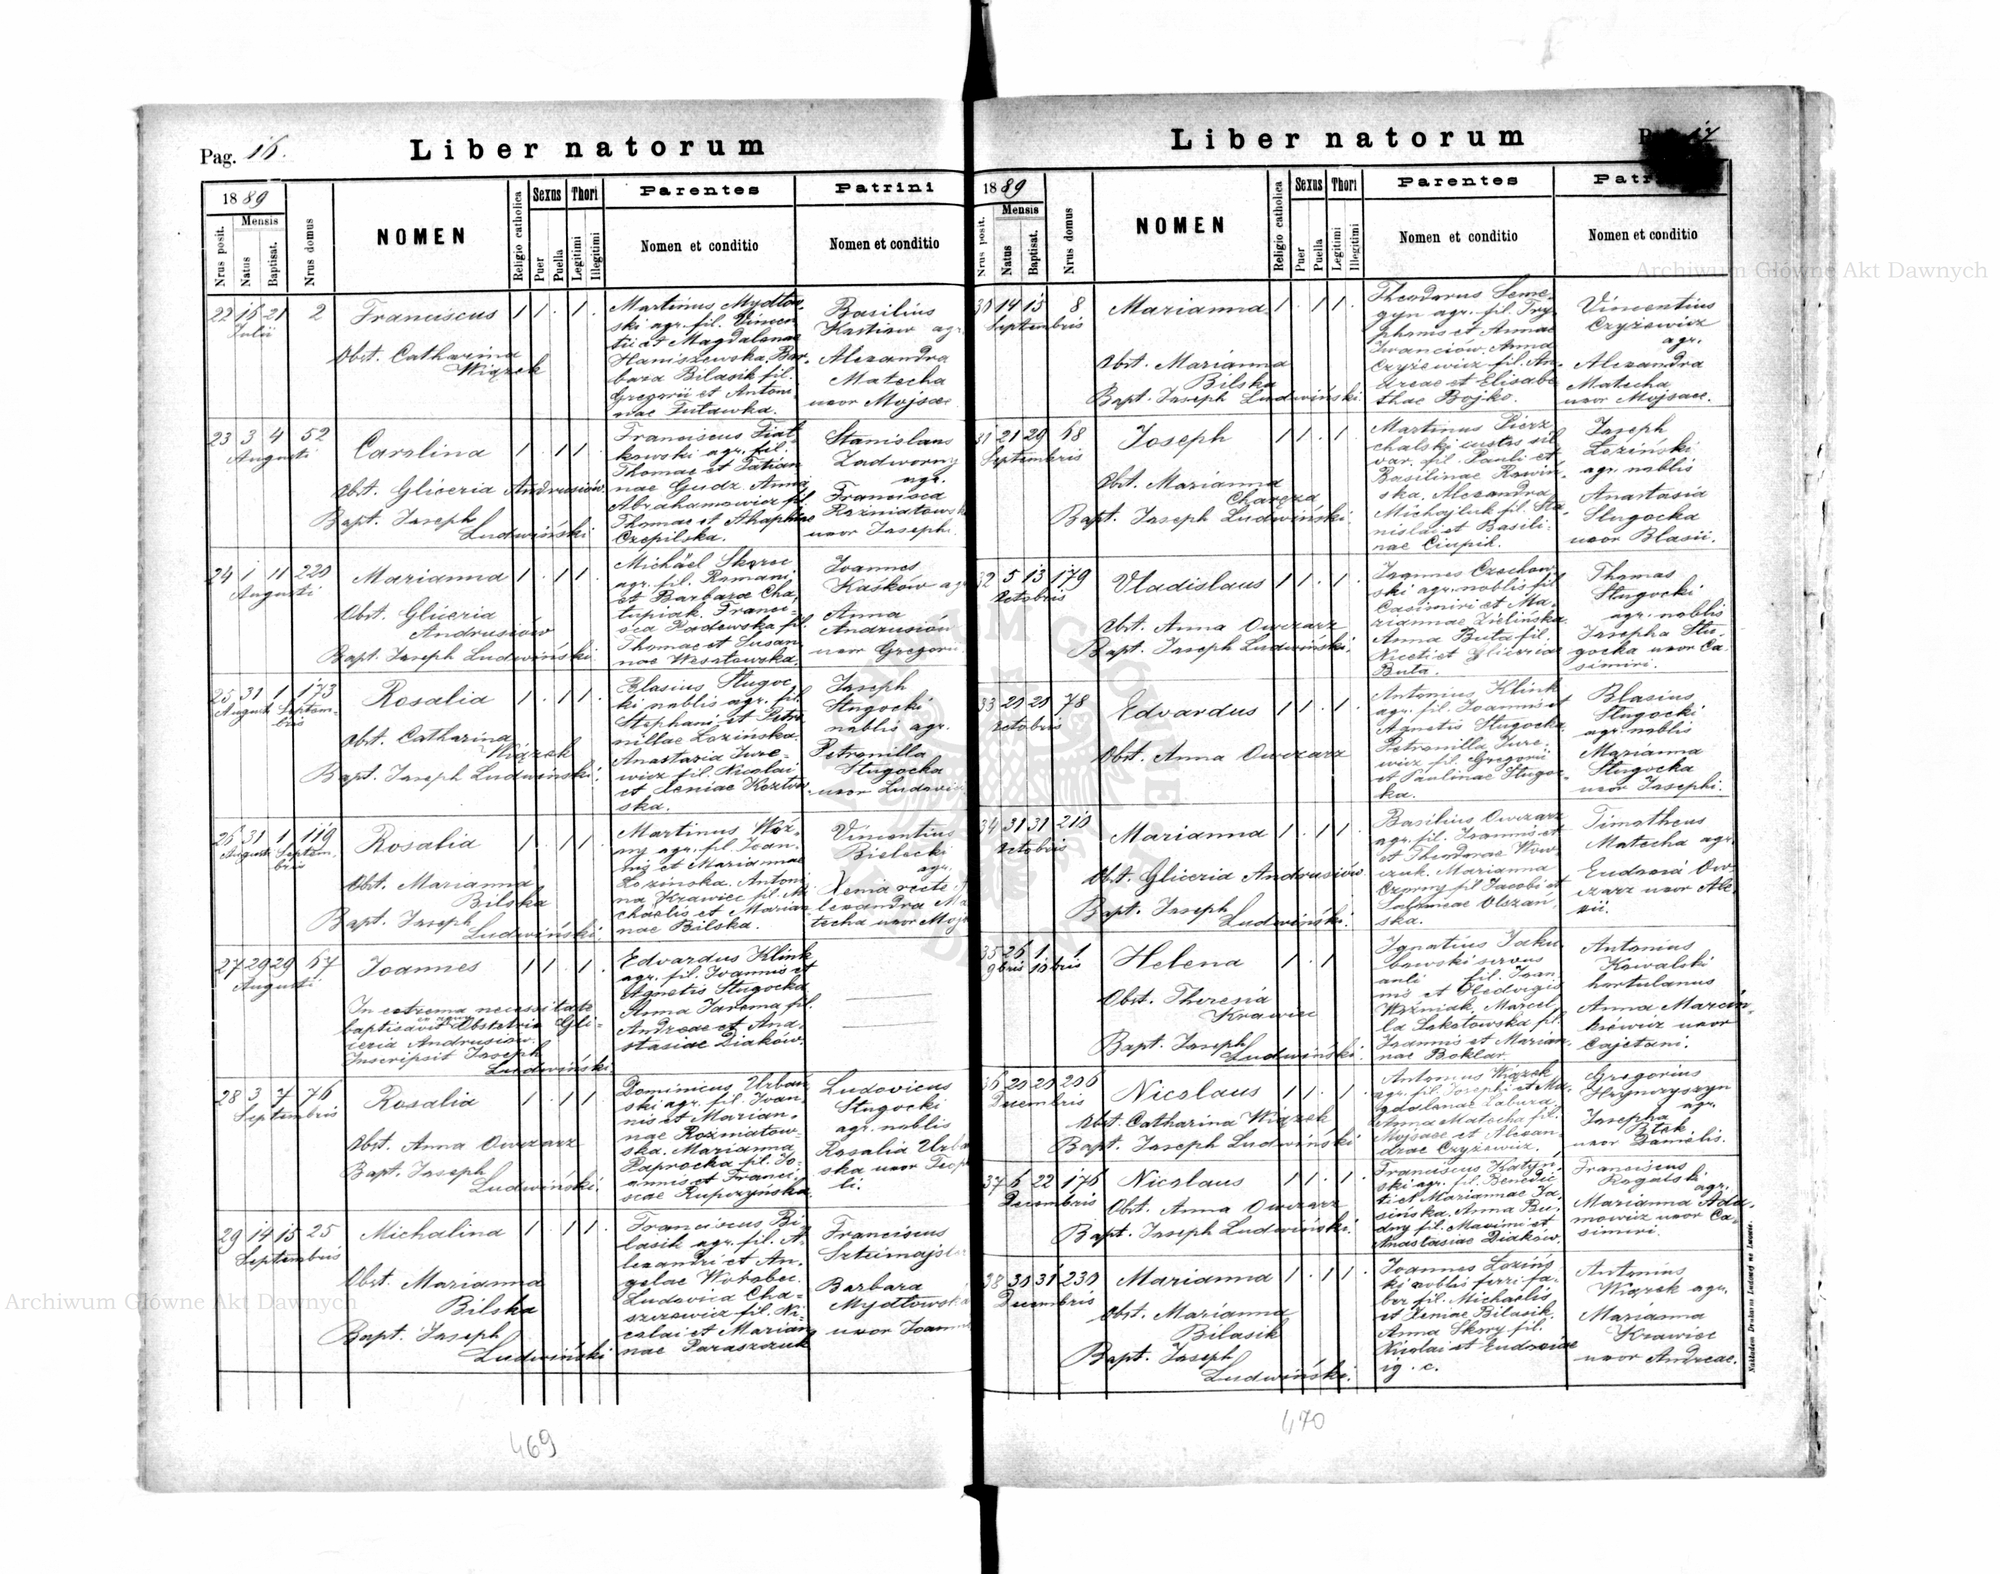 Pag. 16.
Liber natorum
1889
Mensis
Nrus posit.
Natus
Baptisat.
Nrus domus
NOMEN
Religio catholica
Sexus
Puer
Puella
Thori
Legitimi
Illegitimi
Parentes
Nomen et conditio
Patrini
Nomen et conditio
22 16 21 2
Julii
Franciscus
Obst. Catharina
Wiązek
Martinus Mydłow-
ski agr. fil. Vincen-
tii et Magdalenae
Haniszewska, Bar-
bara Bilasik fil.
Gregorii et Anton-
nae
Basilius
agr.
Alexandra
Matecha
uxor Mojsae
23 3 4 52
Augusti
Carolina
Obst. Gliceria Andrusiów.
Bapt. Joseph
Ludwiński
Franciscus Fiat-
kowski agr. fil.
Thomae et Tatian-
nae Gudz. Anna
Abrahamowicz fil.
Thomae et Ahaphiae
Czepilska.
Stanislaus
Zadworny
agr.
Francisca
Rożniatowsk
uxor Josephi.
24 1 11 220
Augusti
Marianna
Obst. Gliceria
Andrusiów
Bapt. Joseph Ludwiński.
Michäel
agr. fil. Romani
et Barbarae Cha-
łupiak. Franci-
sca fil.
Thomae et Susan-
nae
Joannes
Kasków
Anna
Andrusiów
uxor Gregorii
25 31 1 173
Augusti Septem-
bris
Rosalia
Obst. Catharina
Wiązek
Bapt. Joseph Ludwiński.
Blasius Sługoc-
ki nobilis agr. fil.
Stephani et Petro-
nillae Łozinska.
Anastazia Jure-
wicz fil. Nicolai
et Xeniae
ska.
Joseph
Sługocki
nobilis agr.
Petronilla
Sługocka
uxor Ludovici
26 31 1 119
Augusti Septem-
bris
Rosalia
Obst. Marianna
Bilska
Bapt. Joseph
Ludwiński.
Martinus Woź-
ny agr. fil. Joan-
nis et Mariannae
Łozinska. Antoni-
na Krawiec fil. Mi-
chaelis et Marian-
nae Bilska.
Vincentius
Bielecki
agr.
Xenia recte
lexandra Ma
techa uxor Mojs
27 29 29 67
Augusti
Joannes
In extrema necessitate
baptisavit ex aqua Obstetrix Gli-
ceria Andrusiów.
Inscripsit Joseph
Ludwiński.
Edvardus Klink
agr. fil. Joannis et
Agnetis Sługocka
Anna Jarema fil.
Andreae et Ana-
stasiae Diaków.
28 3 7 76
Septembris
Rosalia
Obst. Anna Owczarz
Bapt. Joseph
Ludwiński.
Dominicus Urban-
ski agr. fil. Joan-
nis et Marian-
nae Rożniatow-
ska. Marianna
Paprocka fil. Jo-
annis et Franci-
scae Rupczyńska
Ludovicus
Sługocki
agr. nobilis
Rosalia Urba
ska uxor Teop
li.
29 14 15 25
Septembris
Michalina
Obst. Marianna
Bilska
Bapt. Joseph
Ludwiński
Franciscus Bi-
lasik agr. fil. A-
lexandri et An-
gelae Worobec.
Ludovica Cha-
szczewicz fil. Ni-
colai et Marian-
nae Paraszczuk
Franciscus
Sztejmajster
Barbara
Mydłowska
uxor Joannis
469
Liber natorum
17
1889
Mensis
Nrus posit.
Natus
Baptisat.
Nrus domus
NOMEN
Religio catholica
Sexus
Puer
Puella
Thori
Legitimi
Illegitimi
Parentes
Nomen et conditio
Nomen et conditio
30 14 15 8
Septembris
Marianna
Obst. Marianna
Bilska
Bapt. Joseph Ludwiński.
Theodorus Seme-
gyn agr. fil. Try-
phonis et Annae
Iwanciów. Anna
Czyżewicz fil. An-
dreae et Elisabe-
thae Bojko.
Vincentius
Czyżewicz
agr.
Alexandra
Matecha
uxor Mojsaee.
31 21 29 68
Septembris
Joseph
Obst. Marianna
Bapt. Joseph Ludwiński.
Martinus Pierz-
chalski custos sil-
var. fil. Pauli et
Basilinae
ska. Alexandra
Michajluk fil. Sta-
nislai et Basili-
nae Ciupil.
Joseph
Łoziński
agr. nobilis
Anastasia
Sługocka
uxor Blasii.
32 5 13 179
Octobris
Vladislaus
Obst. Anna Owczarz
Bapt. Joseph Ludwiński.
Joannes Czechow-
ski agr. nobilis fil.
Casimiri et Ma-
riannae Zielińska.
Anna Buta fil.
Niceti et Gliceriae
Buta.
Thomas
Sługocki
agr. nobilis
Josepha Słu-
gocka uxor Ca-
simiri.
33 20 20 78
Octobris
Edvardus
Obst. Anna Owczarz
Antonius Klink
agr. fil. Joannis et
Agnetis Sługocka.
Petronilla Jure-
wicz fil. Gregorii
et Paulinae Sługoc-
ka.
Blasius
Sługocki
agr. nobilis
Marianna
Sługocka
uxor Josephi.
34 31 31 210
Octobris
Marianna
Obst. Gliceria Andrusiów
Bapt. Joseph
Ludwiński.
Basilius Owczarz
agr. fil. Joannis et
et Theodorae Wow-
czuk. Marianna
Czorny fil. Jacobi et
Salomeae Olszań-
ska.
Timotheus
Matecha agr.
Eudoxia Ow-
czarz uxor Ale-
xii.
35 26 1 1
9bris 10bris
Helena
Obst. Theresia
Krawiec
Bapt. Joseph
Ludwiński.
Ignatius Jaku-
bowski servus
auli fil. Joan-
nis et Hedvigis
Woźniak, Marcel-
la Sokołowska fil.
Joannis et Marian-
nae Boklar.
Antonius
Kowalski
hortulanus
Anna Marcin-
kiewicz uxor
Cajetani.
36 20 20 206
Decembris
Nicolaus
Obst. Catharina Wiązek
Bapt. Joseph Ludwiński
Antonius Wiązek
agr. fil. Josephi et Ma-
gdalenae Labura.
Anna Matecha fil.
Mojsaee et Alexan-
drae Czyżewicz.
Gregorius
Hrynczyszyn
agr.
Josepha
uxor Danielis.
37 6 22 176
Decembris
Nicolaus
Obst. Anna Owczarz
Bapt. Joseph Ludwiński.
Franciscus Katyń-
ski agr. fil. Benedic-
ti et Mariannae Ja-
sińska. Anna Bu-
dny fil. Maximi et
Anastasiae Diaków.
Franciscus
Rogalski
agr.
Marianna Ada-
mowicz uxor Ca-
simiri.
38 30 31 230
Decembris
Marianna
Obst. Marianna
Bilasik
Bapt. Joseph
Ludwiński.
Joannes Łoziń-
ki nobilis ferri fa-
ber fil. Michaelis
et Xeniae Bilasik.
Anna fil.
Nicolai et Eudoxiae
ig. c.
Antonius
Wiązek agr.
Marianna
Krawiec
uxor Andreae.
Nakładem Drukarni Ludowej we Lwowie.
470
Archiwum Główne Akt Dawnych
Archiwum Główne Akt Dawnych